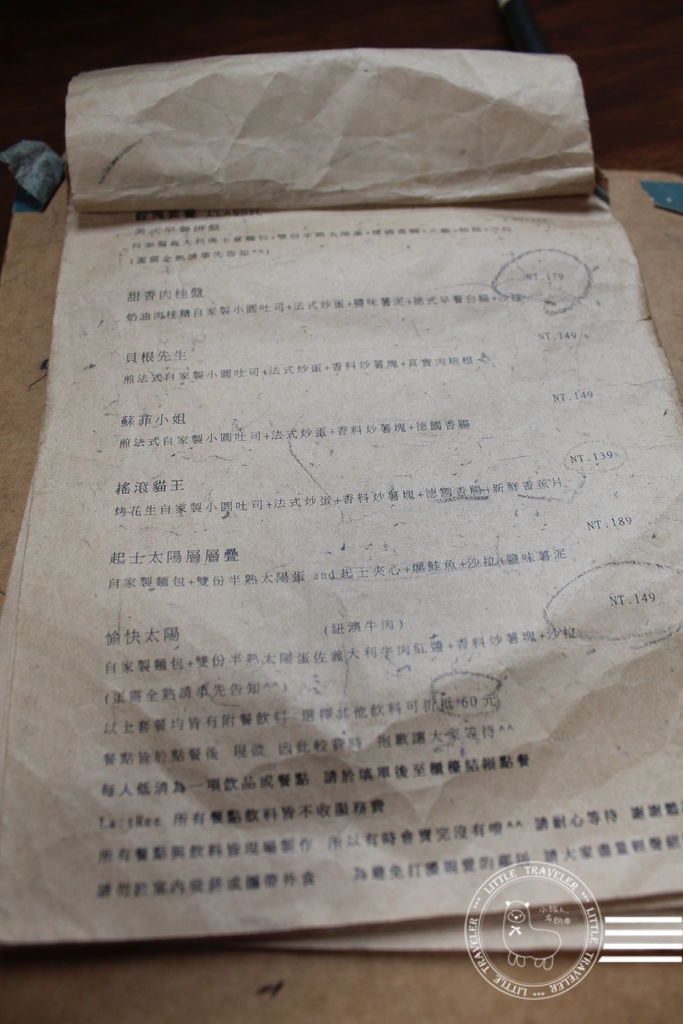 CLASSIC
美式早餐拼盤
(蛋需全熟請事先告知^^)
NT.179
甜香肉桂盤
奶油肉桂糖自家製小圓吐司+法式炒蛋+鹽味薯泥+德式早餐白腸+沙拉
NT.149
貝根先生
煎法式自家製小圓吐司+法式炒蛋+香料炒薯塊+真實肉培根
NT.149
蘇菲小姐
煎法式自家製小圓吐司+法式炒蛋+香料炒薯塊+德國香腸
NT.139
搖滾貓王
烤花生自家製小圓吐司+法式炒蛋+香料炒薯塊+德國香腸+新鮮香蕉片
NT.189
起士太陽層層疊
自家製麵包+雙份半熟太陽蛋 and起士夾心+燻鮭魚+沙拉+鹽味薯泥
NT.149
愉快太陽 (紐澳牛肉)
自家製麵包+雙份半熟太陽蛋佐義大利牛肉紅醬+香料炒薯塊+沙拉
(蛋需全熟請事先告知^^)
以上套餐均皆有附餐飲料 選擇其他飲料可折抵 60 元
餐點皆於點餐後 現做 因此較費時 抱歉讓大家等待^^
每人低消為一項飲品或餐點 請於填單後至櫃檯結帳點餐
所有餐點飲料皆不收服務費
所有餐點與飲料皆現場製作 所以有時會賣完沒有唷^^ 請耐心等待 謝謝
請勿於室內吸菸或攜帶外食 為避免打擾親愛的鄰居 請大家盡量輕聲
LITTLE TRAVELER ... LITTLE TRAVELER ... LITTLE TRAVELER
小旅人